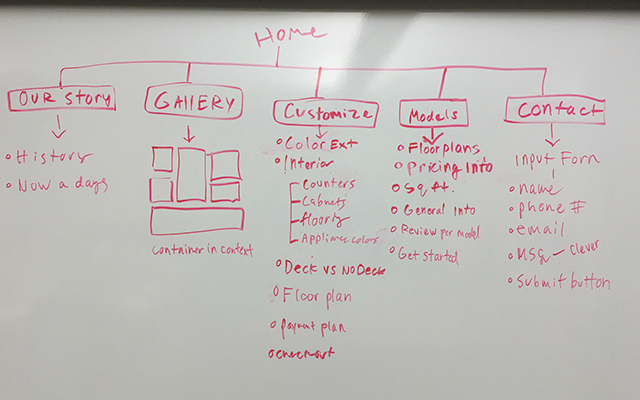 Home
OUR Story
History
Now a days
GALLERY
Container in context
Customize
Color Ext
Interior
Counters
Cabnets
Appliance colors
Deck vs No Deck
Floor plan
payment plan
Models
Floorplans
Pricing Info
Sq ft.
General Info
Review per model
Get Started
Contact
Input Form
name
phone #
email
MSG - Clever
Submit button